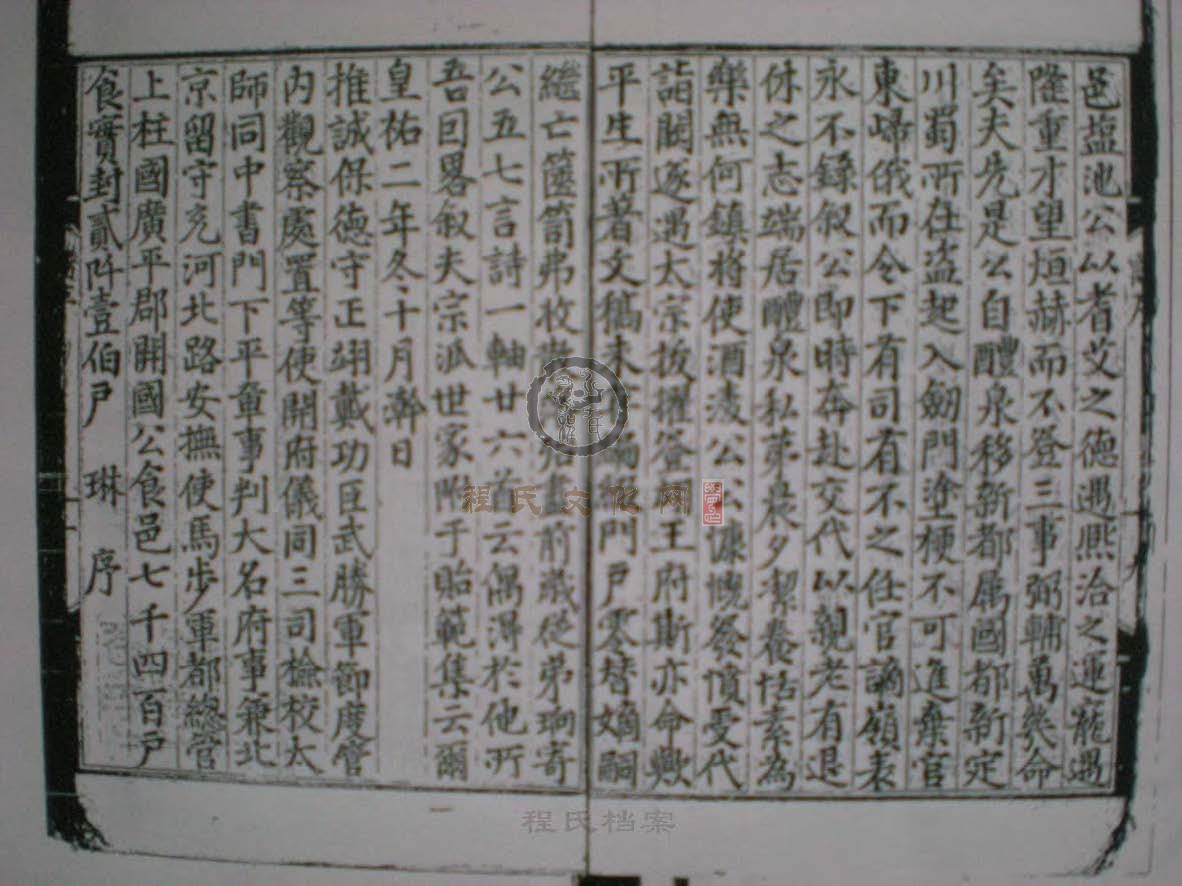 邑塩池公以耆艾之德遇熙洽之運寵遇
隆重才望烜赫而不登三事弼輔萬㡬命
矣夫先是公自醴泉移新都属國都新定
川蜀所在盗起入劒門塗梗不可進棄官
東歸俄而令下有司有不之任官謫嶺表
永不録叙公即時奔赴交代以親老有退
休之志端居醴泉私苐晨夕潔養恬素為
樂無何鎮将使酒凌公公慷慨發憤受代
詣闕遂遇太宗拔擢登 王府斯亦命歟
平生所著文稿未 編門戸零替嫡嗣
繼亡箧笥弗 盡前歳從弟珦寄
公五七言詩一軸廿六首云偶淂於他所
吾囙畧叙夫宗派世家附于貽範集云爾
皇祐二年冬十月 日
推誠保德守正翊戴功臣武勝軍節度管
内觀察處置等使開府儀同三司檢校太
師同中書門下平章事判大名府事兼北
京留守充河北路安撫使馬步軍都總管
上柱國廣平郡開國公食邑七千四百戸
食實封貳阡壹伯戸 琳 序
程氏文化网
程氏档案